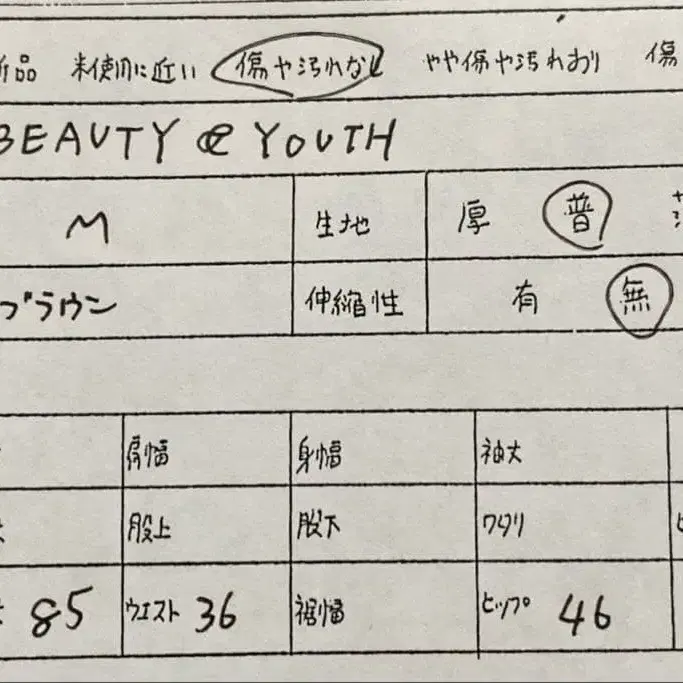 新品 未使用に近い 傷や汚れなし やや傷や汚れあり 傷
BEAUTY & YOUTH
M 生地 厚 普
ブラウン 伸縮性 有 無
肩幅 身幅 袖丈
股上 股下 ワタリ
85 ウエスト 36 裾幅 ヒップ 46